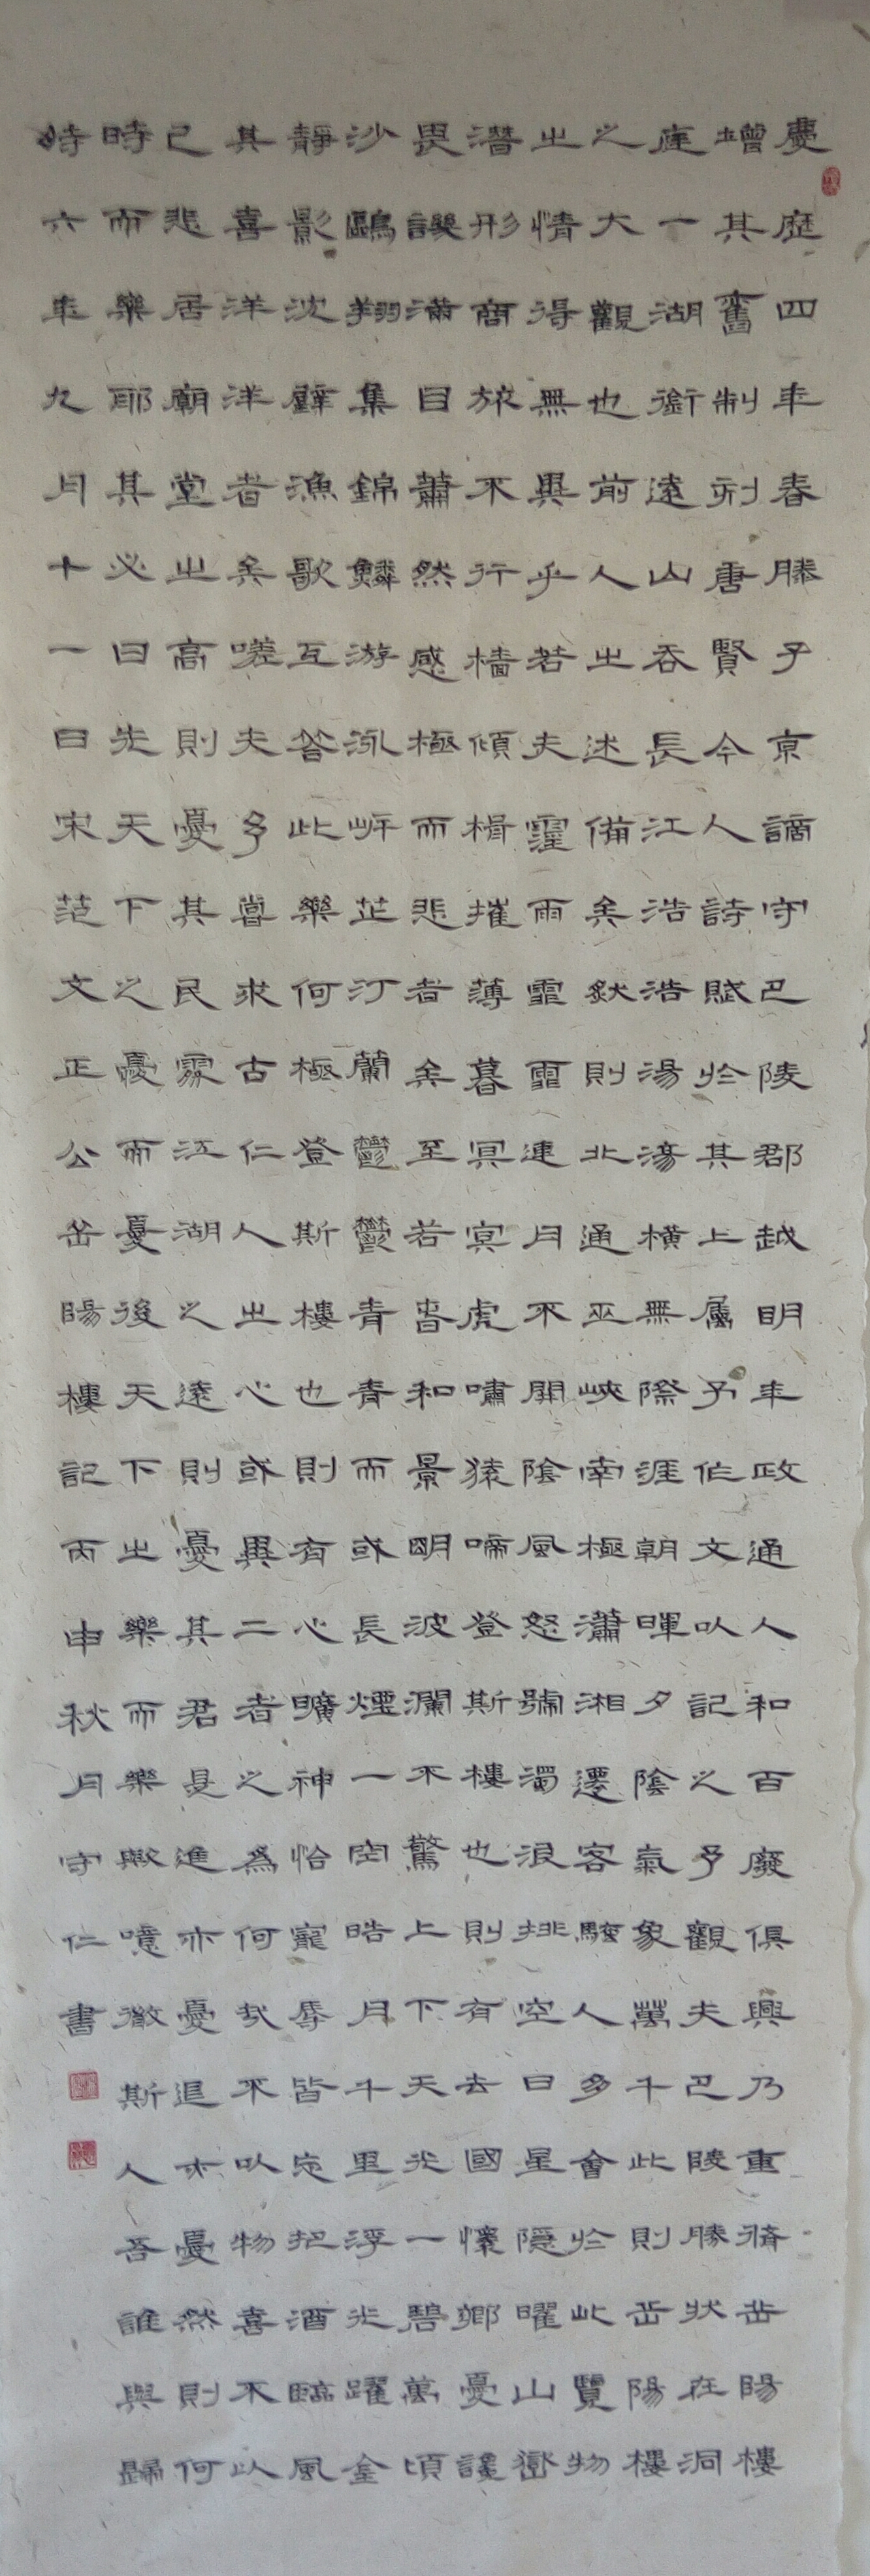 慶歷四年春滕子京謫守巴陵郡越明年政通人和百廢俱興乃重脩岳陽樓
增其舊制刻唐賢今人詩賦於其上屬予作文以記之予觀夫巴陵勝狀在洞
庭一湖銜遠山吞長江浩浩湯湯橫無際涯朝暉夕陰氣象萬千此則岳陽樓
之大觀也前人之述備矣然則北通巫峽南極瀟湘遷客騷人多會於此覽物
之情得無異乎若夫霪雨霏霏連月不開陰風怒號濁浪排空日星隱曜山嶽
潛形商旅不行檣傾楫摧薄暮冥冥虎嘯猿啼登斯樓也則有去國懷鄉憂讒
畏譏滿目蕭然感極而悲者矣至若春和景明波瀾不驚上下天光一碧萬頃
沙鷗翔集錦鱗游泳岸芷汀蘭鬱鬱青青而或長煙一空皓月千里浮光躍金
靜影沈璧漁歌互答此樂何極登斯樓也則有心曠神怡寵辱皆忘把酒臨風
其喜洋洋者矣嗟夫予嘗求古仁人之心或異二者之為何哉不以物喜不以
己悲居廟堂之高則憂其民處江湖之遠則憂其君是進亦憂退亦憂然則何
時而樂耶其必曰先天下之憂而憂後天下之樂而樂歟噫微斯人吾誰與歸
時六年九月十一日宋范文正公岳陽樓記丙申秋月守仁書